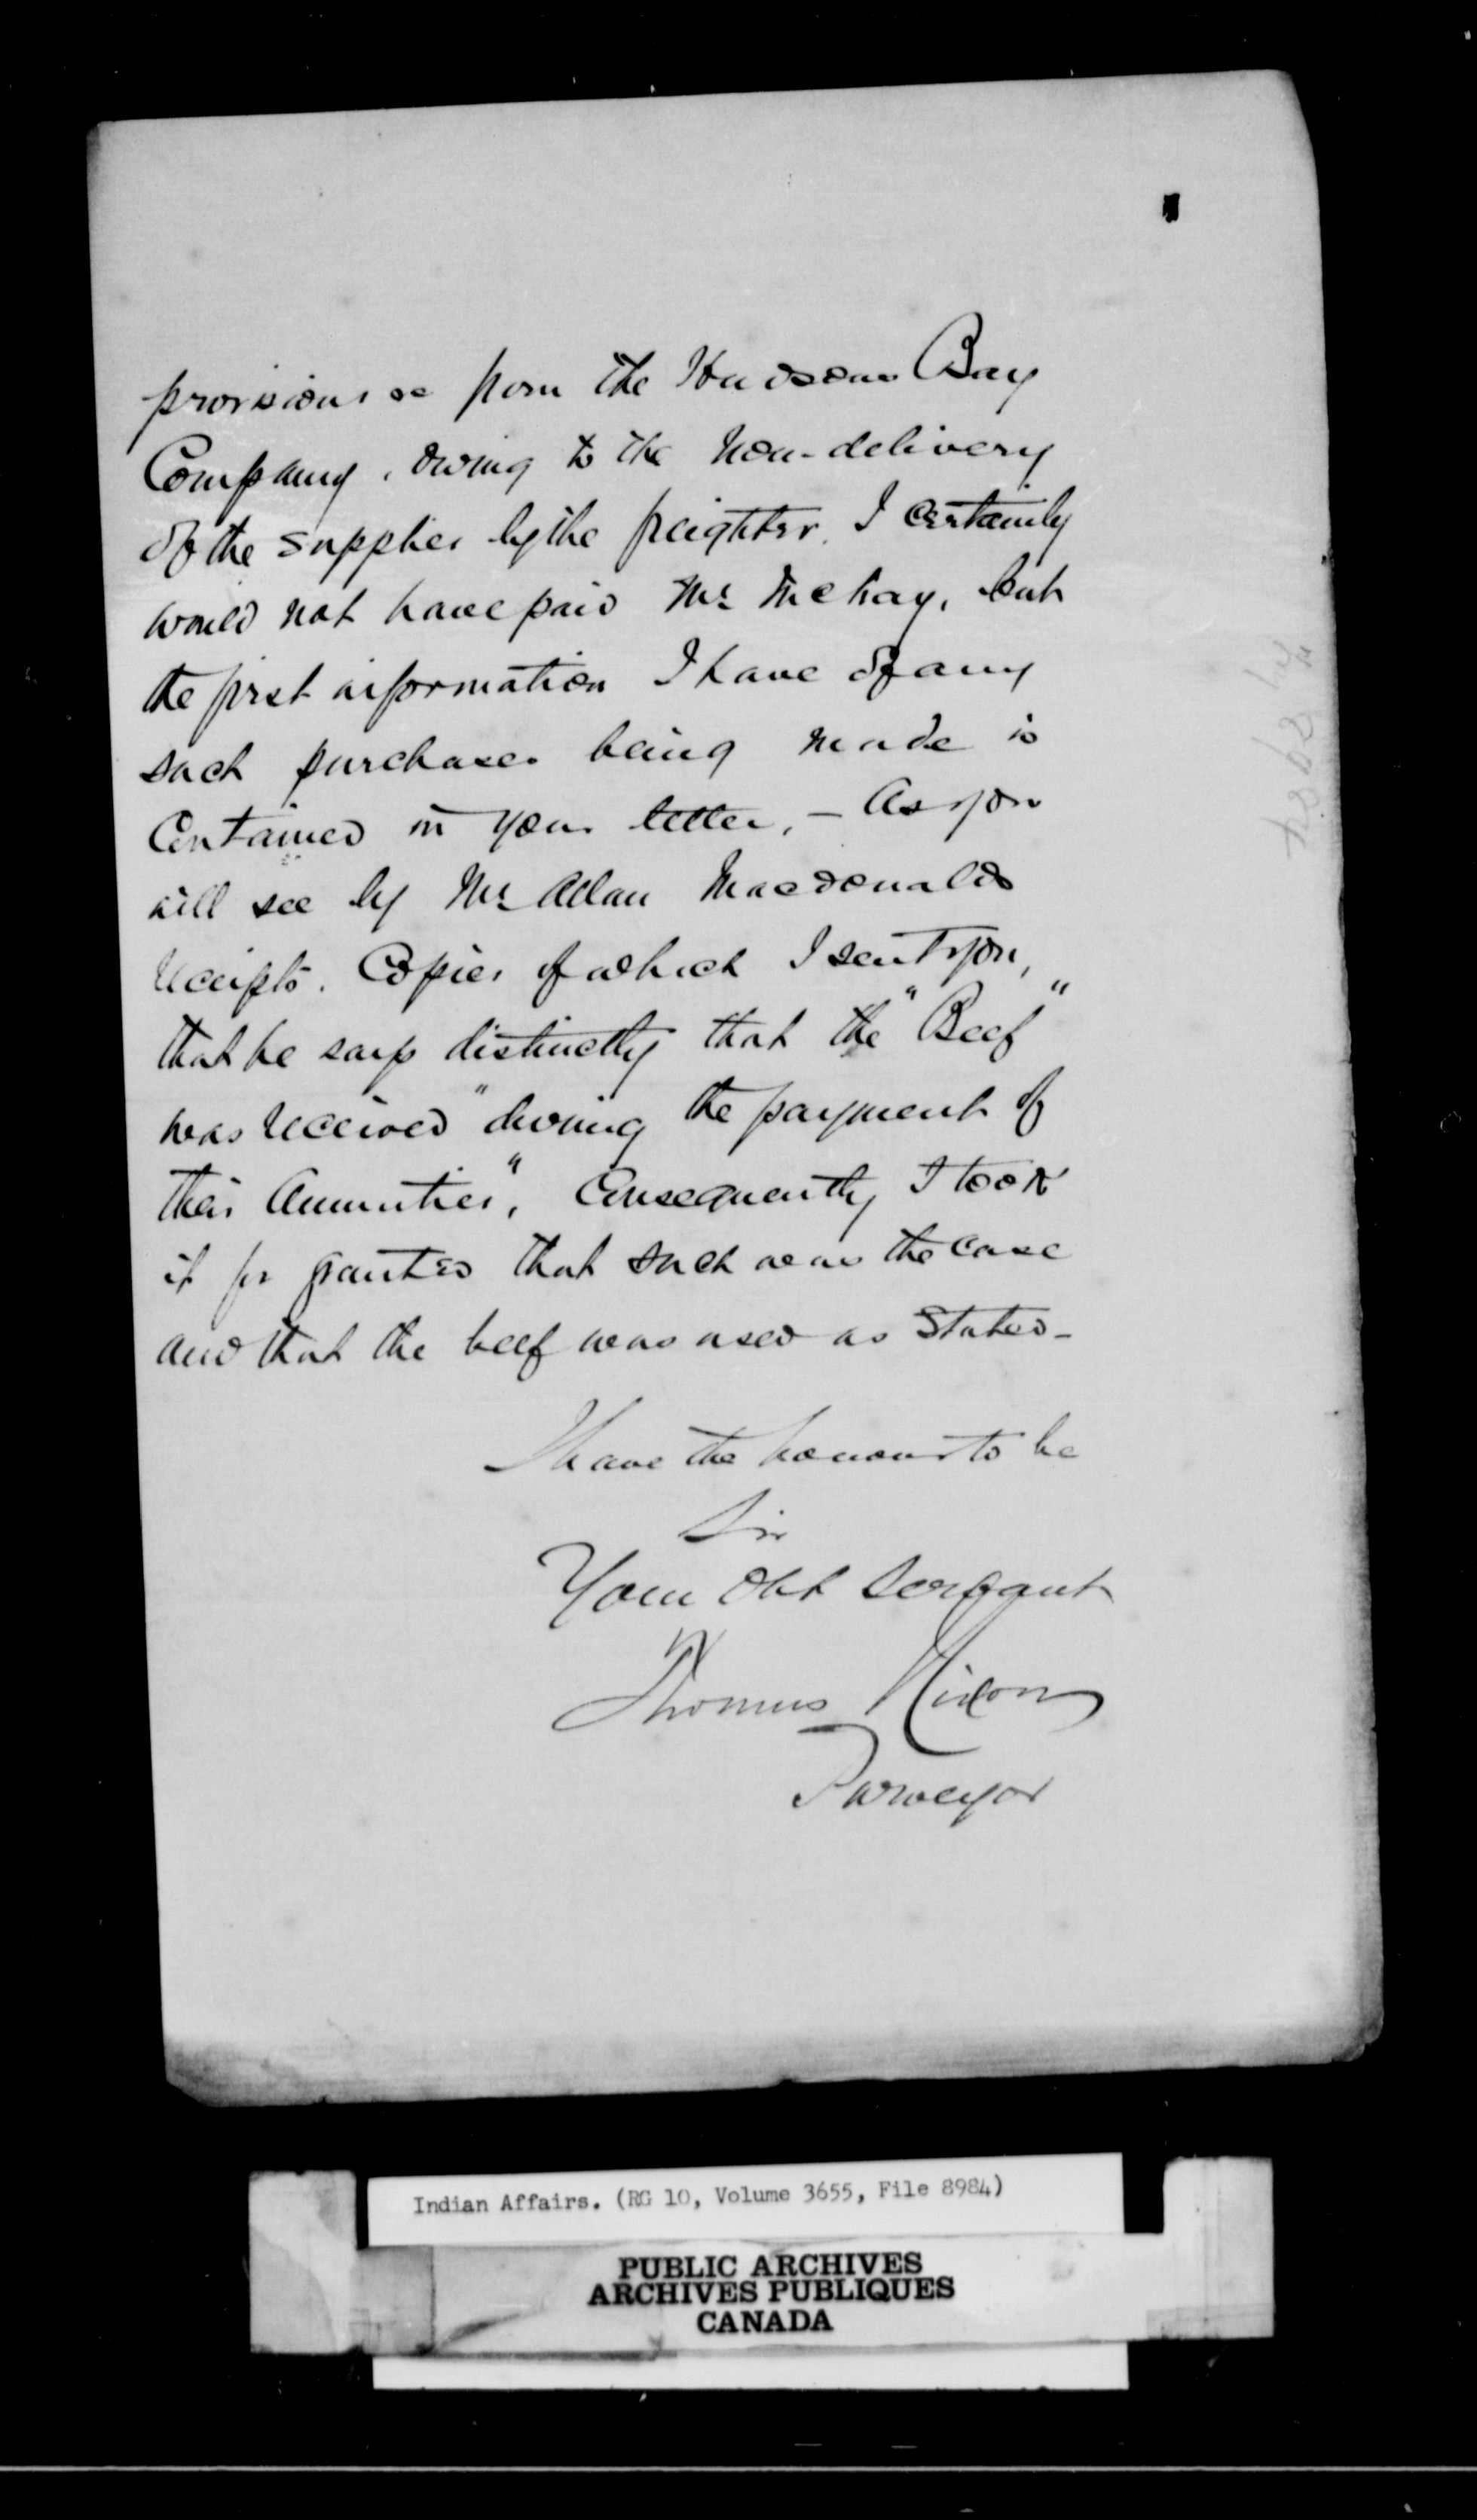 provisions &c from the Hudsons Bay
Company, owing to the non-delivery
of the supplies by the freighter. I certainly
would not have paid Mr McKay, but
the first information I have of any
such purchases being made is
contained in your letter, - As you
will see by Mr Allan Macdonalds
receipts. Copies of which I sent you,
that he says distinctly that the "Beef"
was received "during the payment of
their Annuities", Consequently I took
it for granted that such was the case
and that the beef was used as stated -
I have the honour to be
Sir
Your Obt Servant
Thomas Nixon
Purveyor
Indian Affairs. (RG 10, Volume 3655, File 8984)
PUBLIC ARCHIVES
ARCHIVES PUBLIQUES
CANADA